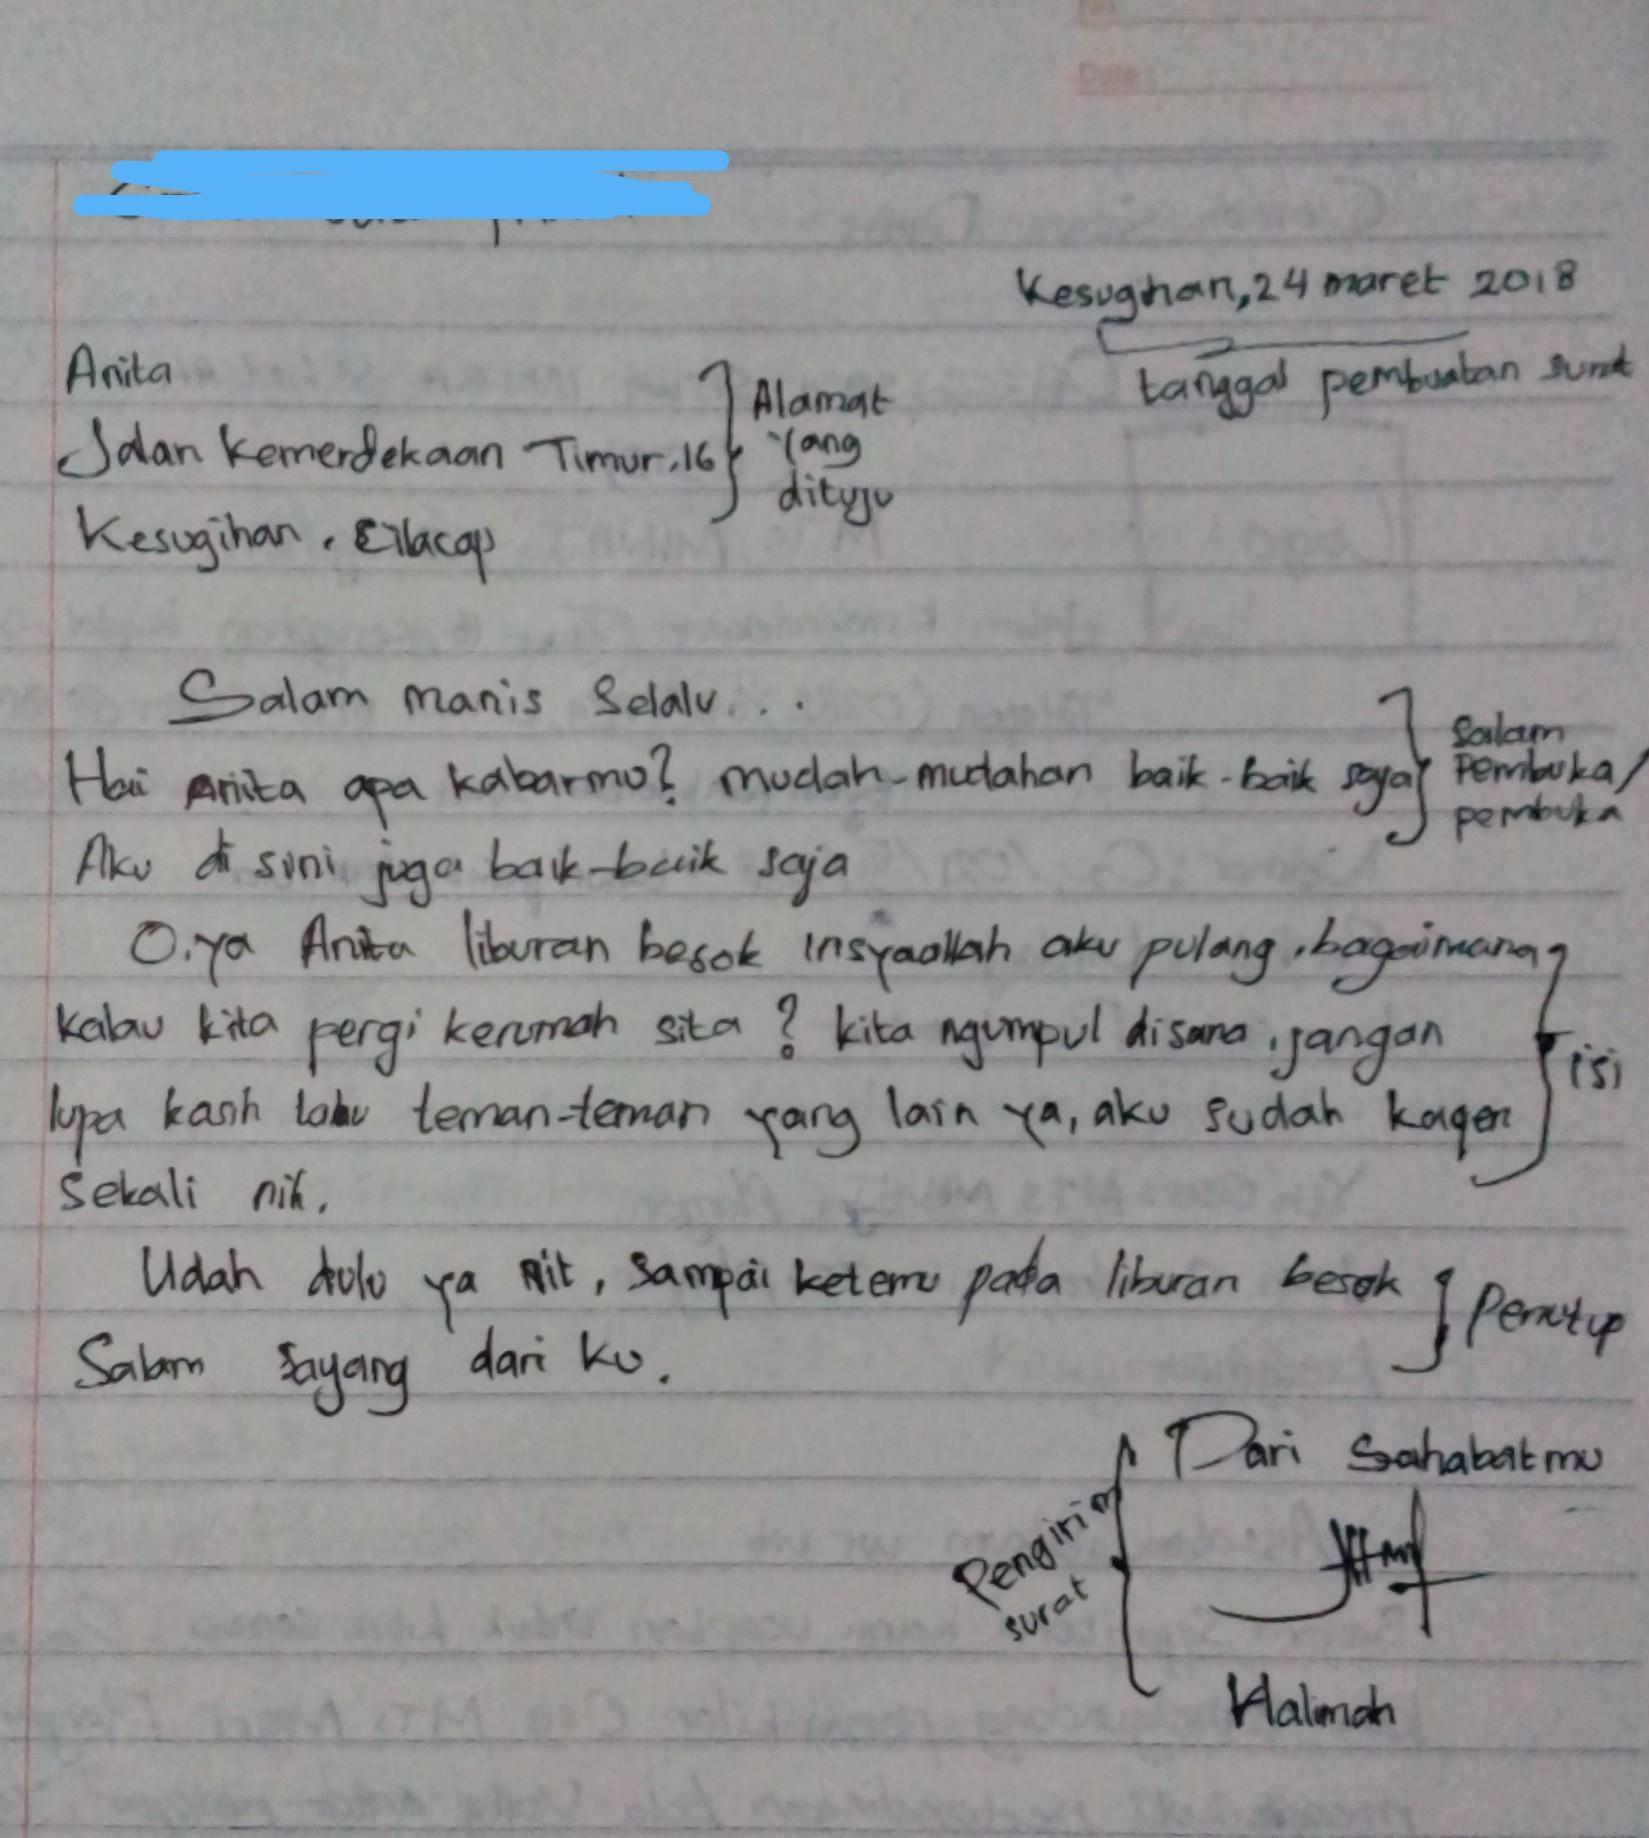 Kesugihan, 24 maret 2018
tanggal pembuatan surat
Anita
Jalan Kemerdekaan Timur, 16
Kesugihan, Cilacap
Alamat
yang
dituju
Salam manis Selalu...
Hai Anita apa kabarmu? mudah-mudahan baik-baik saja
Aku di sini juga baik-baik saja
Salam
Pembuka/
pembuka
O.ya Anita liburan besok insyaallah aku pulang, bagaimana
kalau kita pergi kerumah sita? kita ngumpul disana, jangan
lupa kasih tahu teman-teman yang lain ya, aku sudah kagen
Sekali nih.
isi
Udah dulu ya Nit, Sampai ketemu pada liburan besok
Salam sayang dari ku.
Penutup
Dari Sahabatmu
Pengirim
surat
Halimah